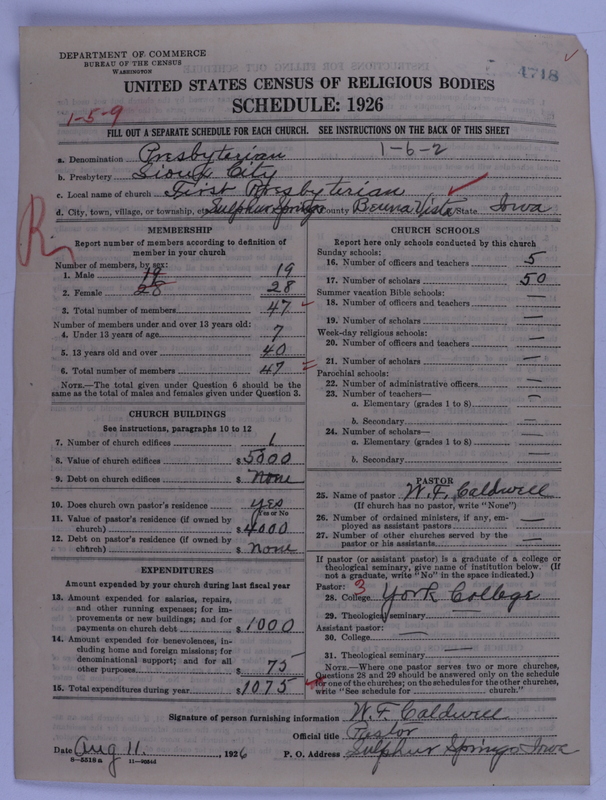 DEPARTMENT OF COMMERCE
BUREAU OF THE CENSUS
WASHINGTON
4718
UNITED STATES CENSUS OF RELIGIOUS BODIES
SCHEDULE: 1926
1-5-9
FILL OUT A SEPARATE SCHEDULE FOR EACH CHURCH. SEE INSTRUCTIONS ON THE BACK OF THIS SHEET
1-6-2
a. Denomination Presbyterian
b. Presbytery Sioux City
c. Local name of church First Presbyterian
d. City, town, village, or township, etc. Sulphur Springs County Beuna Vista State Iowa
R
MEMBERSHIP
Report number of members according to definition of
member in your church
Number of members, by sex:
1. Male 19 19
2. Female 28 28
3. Total number of members 47
Number of members under and over 13 years old:
4. Under 13 years of age 7
5. 13 years old and over 40
6. Total number of members 47
NOTE.—The total given under Question 6 should be the
same as the total of males and females given under Question 3.
CHURCH BUILDINGS
See instructions, paragraphs 10 to 12
7. Number of church edifices 1
8. Value of church edifices $5000
9. Debt on church edifices $ none
10. Does church own pastor's residence yes
Yes or No
11. Value of pastor's residence (if owned by
church) $4000
12. Debt on pastor's residence (if owned by
church) $ none
EXPENDITURES
Amount expended by your church during last fiscal year
13. Amount expended for salaries, repairs,
and other running expenses; for im-
provements or new buildings; and for
payments on church debt $ 1000
14. Amount expended for benevolences, in-
cluding home and foreign missions; for
denominational support; and for all
other purposes $ 75
15. Total expenditures during year $1075
CHURCH SCHOOLS
Report here only schools conducted by this church
Sunday schools:
16. Number of officers and teachers 5
17. Number of scholars 50
Summer vacation Bible schools:
18. Number of officers and teachers —
19. Number of scholars —
Week-day religious schools:
20. Number of officers and teachers —
21. Number of scholars —
Parochial schools:
22. Number of administrative officers —
23. Number of teachers—
a. Elementary (grades 1 to 8) —
b. Secondary —
24. Number of scholars—
a. Elementary (grades 1 to 8) —
b. Secondary —
PASTOR
25. Name of pastor W. F. Caldwell
(If church has no pastor, write "None")
26. Number of ordained ministers, if any, em-
ployed as assistant pastors —
27. Number of other churches served by the
pastor or his assistants —
If pastor (or assistant pastor) is a graduate of a college or
theological seminary, give name of institution below. (If
not a graduate, write "No" in the space indicated.)
Pastor: 3
28. College York College
29. Theological seminary —
Assistant pastor:
30. College —
31. Theological seminary —
NOTE.—Where one pastor serves two or more churches,
Questions 28 and 29 should be answered only on the schedule
for one of the churches; on the schedules for the other churches,
write "See schedule for church."
Signature of person furnishing information W. F. Caldwell
Official title Pastor
Date Aug 11. , 1926 P. O. Address Sulphur Springs Iowa
8-5518a 11-9064d